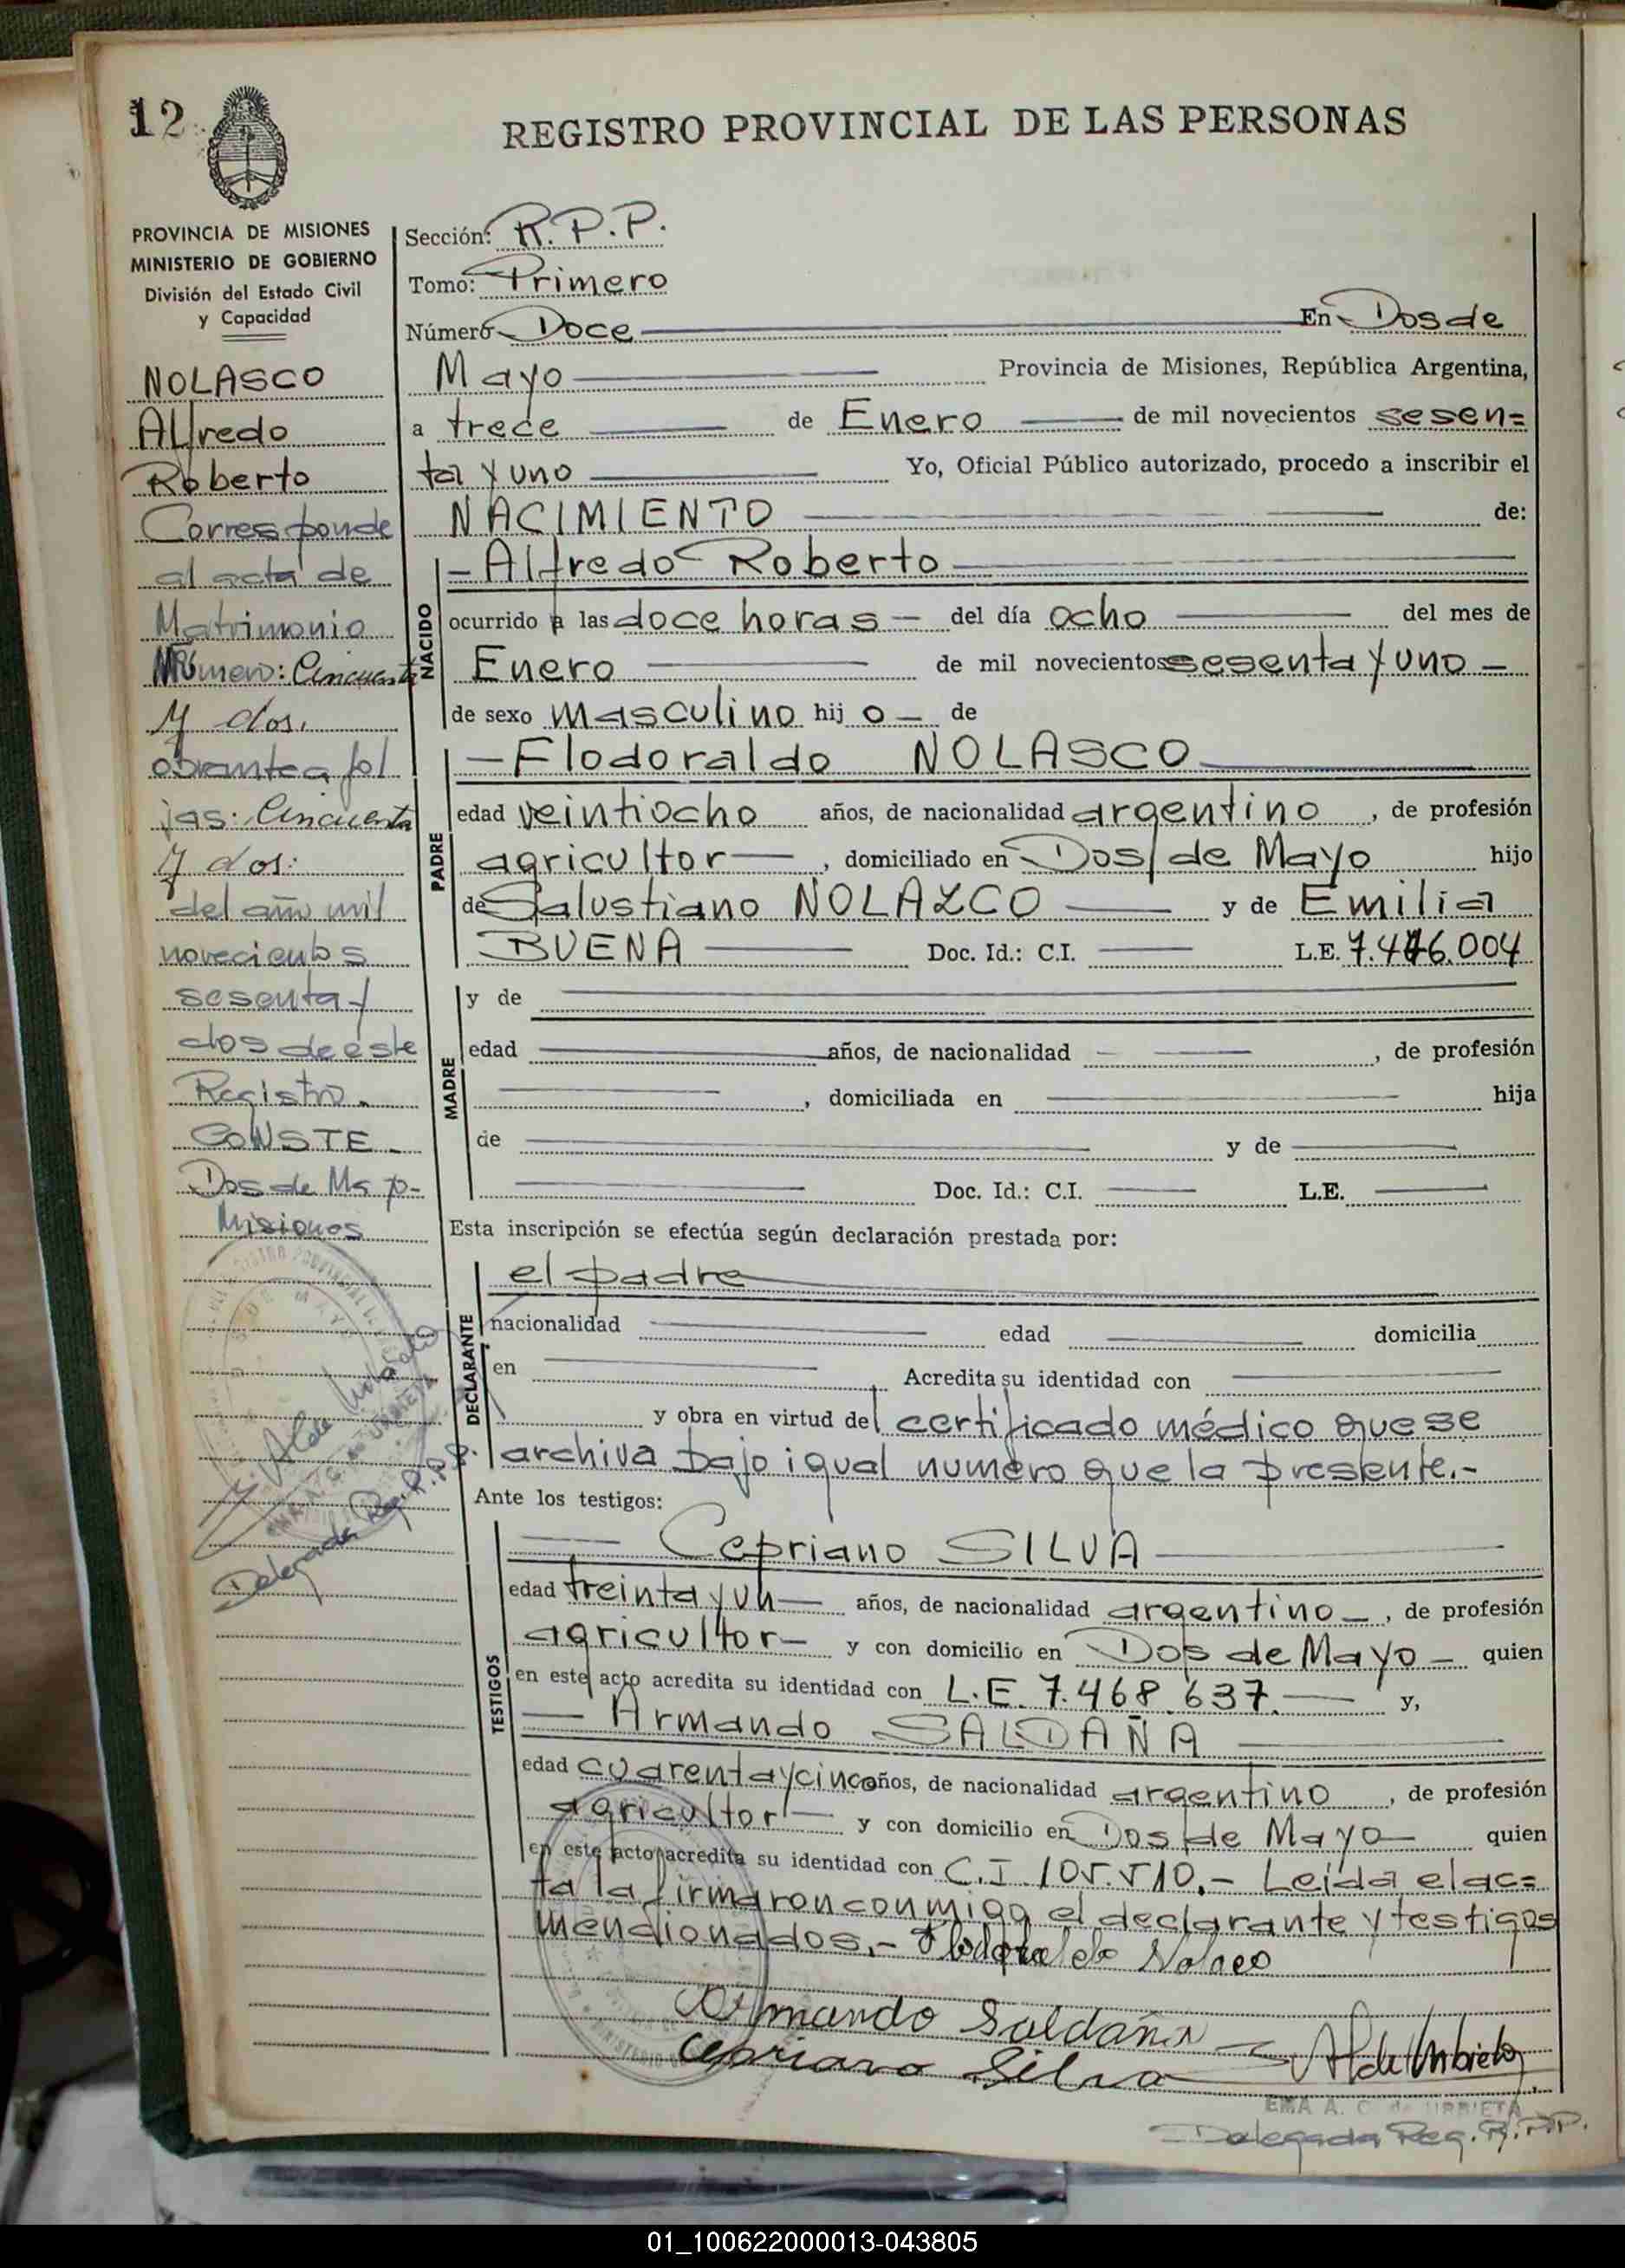 12
REGISTRO PROVINCIAL DE LAS PERSONAS
PROVINCIA DE MISIONES
MINISTERIO DE GOBIERNO
División del Estado Civil
y Capacidad
NOLASCO
Alfredo
Roberto
Corresponde
al acta de
Matrimonio
Número: Cincuenta
y dos.
obrante a fo
jas: Cincuenta
y dos:
del año mil
novecientos
sesenta y
dos de éste
Registro.
CONSTE.-
Dos de Mayo-
Misiones
Delegada Reg. R.P.P.
Sección: R.P.P.
Tomo: Primero
Número Doce En Dos de
Mayo Provincia de Misiones, República Argentina,
a trece de Enero de mil novecientos sesen=
ta y uno Yo, Oficial Público autorizado, procedo a inscribir el
NACIMIENTO de:
NACIDO
- Alfredo Roberto
ocurrido a las doce horas - del día ocho del mes de
Enero de mil novecientos sesenta y uno -
de sexo masculino hij o - de
PADRE
- Flodoraldo NOLASCO
edad veintiocho años, de nacionalidad argentino, de profesión
agricultor, domiciliado en Dos de Mayo hijo
de Salustiano NOLAZCO y de Emilia
BUENA Doc. Id.: C.I. L.E. 7.476.004
MADRE
y de
edad años, de nacionalidad , de profesión
, domiciliada en hija
de y de
Doc. Id.: C.I. L.E.
Esta inscripción se efectúa según declaración prestada por:
DECLARANTE
el padre
nacionalidad edad domicilia
en Acredita su identidad con
y obra en virtud del certificado médico que se
archiva bajo igual numero que la presente.-
Ante los testigos:
TESTIGOS
Cepriano SILVA
edad treinta y un años, de nacionalidad argentino -, de profesión
agricultor - y con domicilio en Dos de Mayo - quien
en este acto acredita su identidad con L.E. 7.468.637.- y,
Armando SALDAÑA
edad cuarenta y cinco años, de nacionalidad argentino, de profesión
agricultor - y con domicilio en Dos de Mayo quien
en este acto acredita su identidad con C.I. 105.510.- Leída el ac=
ta la firmaron conmigo el declarante y testigos
mencionados.- Flodoraldo Nolasco
Armando Saldaña
Cepriano Silva
EMA A. C. de URRIETA
Delegada Reg. R.P.P.
01_100622000013-043805